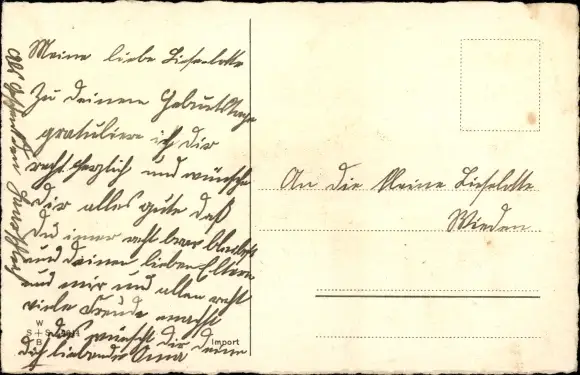 Meine liebe Lieselotte
Zu deinem Geburtstage
gratuliere ich dir
recht herzlich und wünsche
dir alles gute daß
du immer recht brav bleibst
und deinen lieben Eltern
und mir und allen recht
viele Freude machst
das wünscht dir deine
dich liebende Oma
An die kleine Lieselotte
Wieden
W
S+S
B
Import